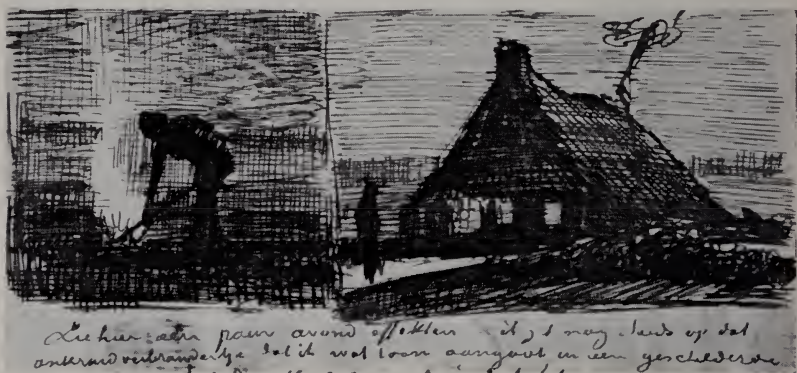 Zie hier een paar avond effekten – ik zit nog steeds op dat
onkruidverbrandertje dat ik wat toon aangaat in een geschilderde